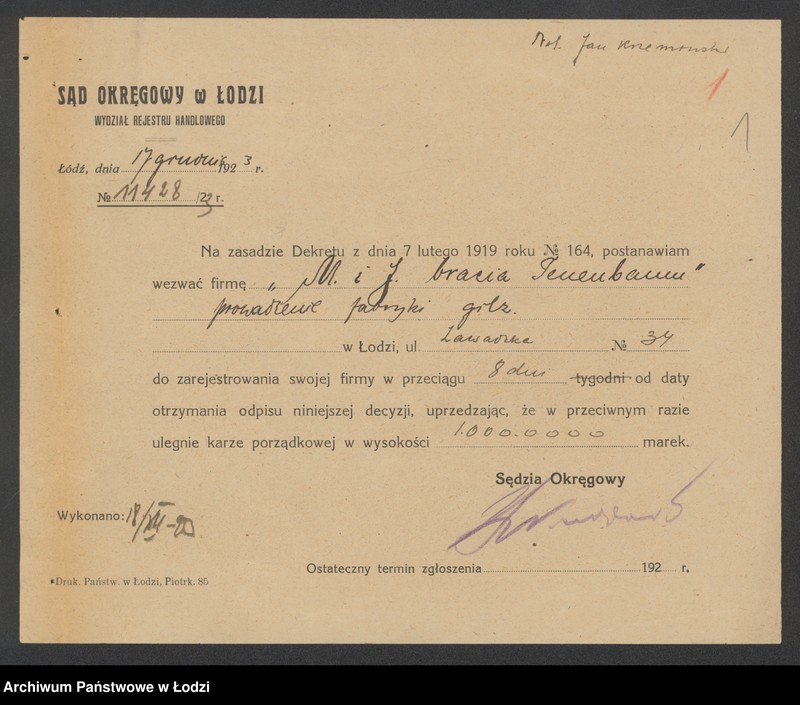 Not. Jan Krzemowski
1
1
SĄD OKRĘGOWY w ŁODZI
WYDZIAŁ REJESTRU HANDLOWEGO
Łódź, dnia 17 grudnia 1923 r.
№ 11428/23 r.
Na zasadzie Dekretu z dnia 7 lutego 1919 roku № 164, postanawiam
wezwać firmę „M. i J. bracia Tenenbaum"
prowadzenie fabryki gilz.
w Łodzi, ul. Zawadzka № 34
do zarejestrowania swojej firmy w przeciągu 8 dni tygodni od daty
otrzymania odpisu niniejszej decyzji, uprzedzając, że w przeciwnym razie
ulegnie karze porządkowej w wysokości 1.000.0000 marek.
Sędzia Okręgowy
Wykonano: 18/XII-23
Ostateczny termin zgłoszenia 192 r.
Druk. Państw. w Łodzi, Piotrk. 85
Archiwum Państwowe w Łodzi